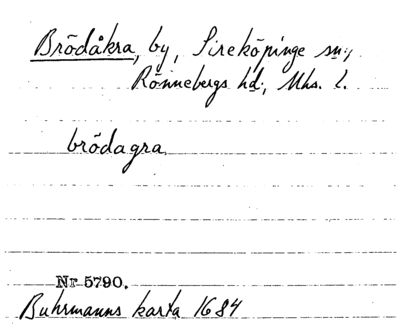 Brödåkra, by, Sireköpinge sn;,
Rönnebergs hd;, Mhs. l.
brödagra
Nr 5790.
Buhrmanns karta 1684